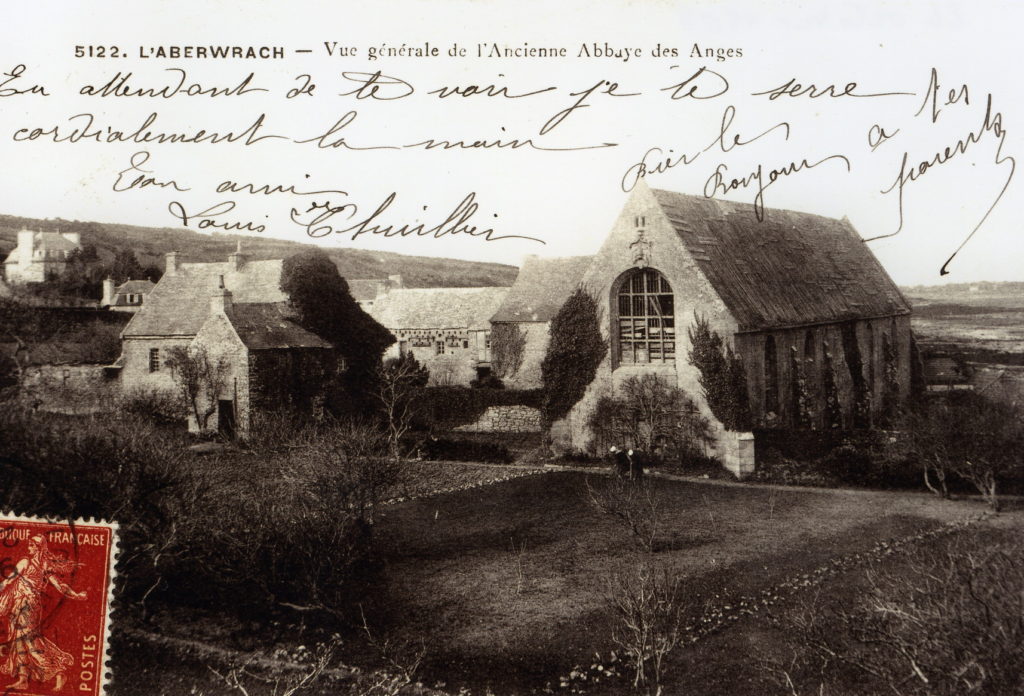 5122. L'ABERWRACH — Vue générale de l'Ancienne Abbaye des Anges
En attendant de te voir je te serre
cordialement la main
Ton ami
Louis Thuillier
Bien le
Bonjour à tes
parents
FRANÇAISE
POSTES